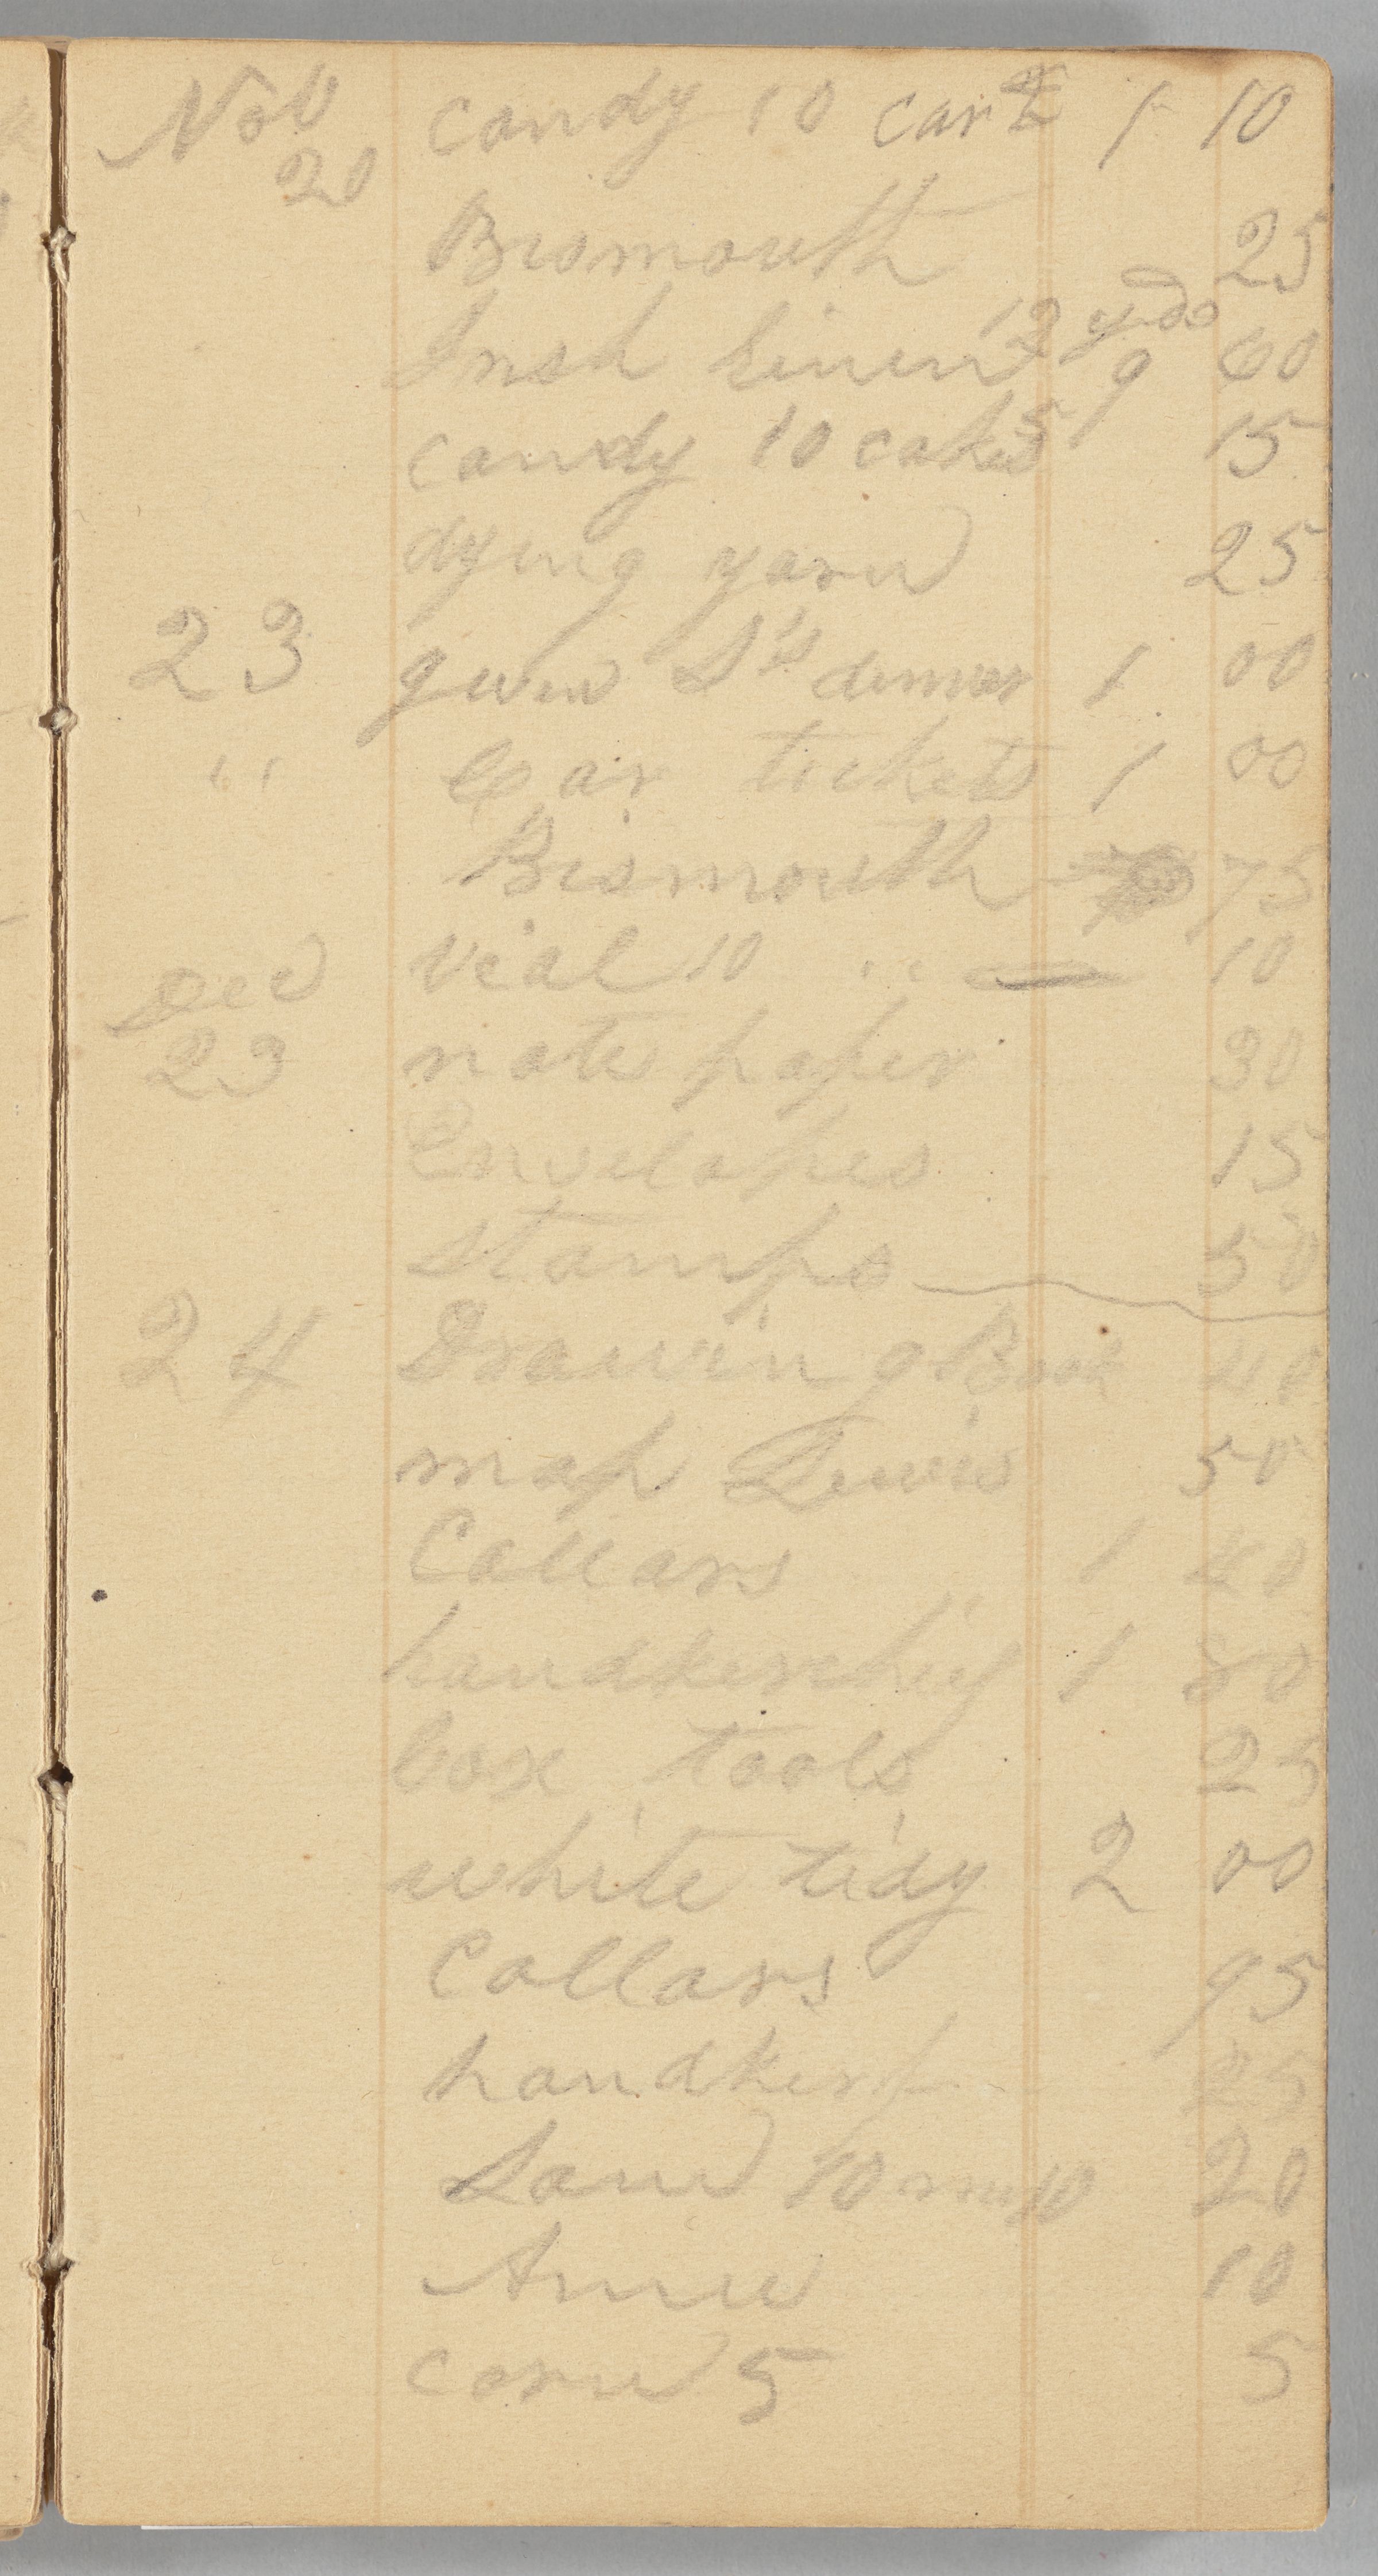 Nov candy 10 car 1 10
20
Bismouth 25
12 yds
Irish Linen 9 60
candy 10 cakes 15
dying yarn 25
23 given S's dinner 1 00
" Car tickets 1 00
Bismouth 75
Dec vial 10 10
23 note paper 30
Envelopes 15
stamps 50
24 Drawing Book 40
map Lewis 50
Collars 1 40
handkerchief 1 80
box tools 25
white tidy 2 00
Collars 95
handkerf 25
10 10 20
Annie 10
corn 5 5